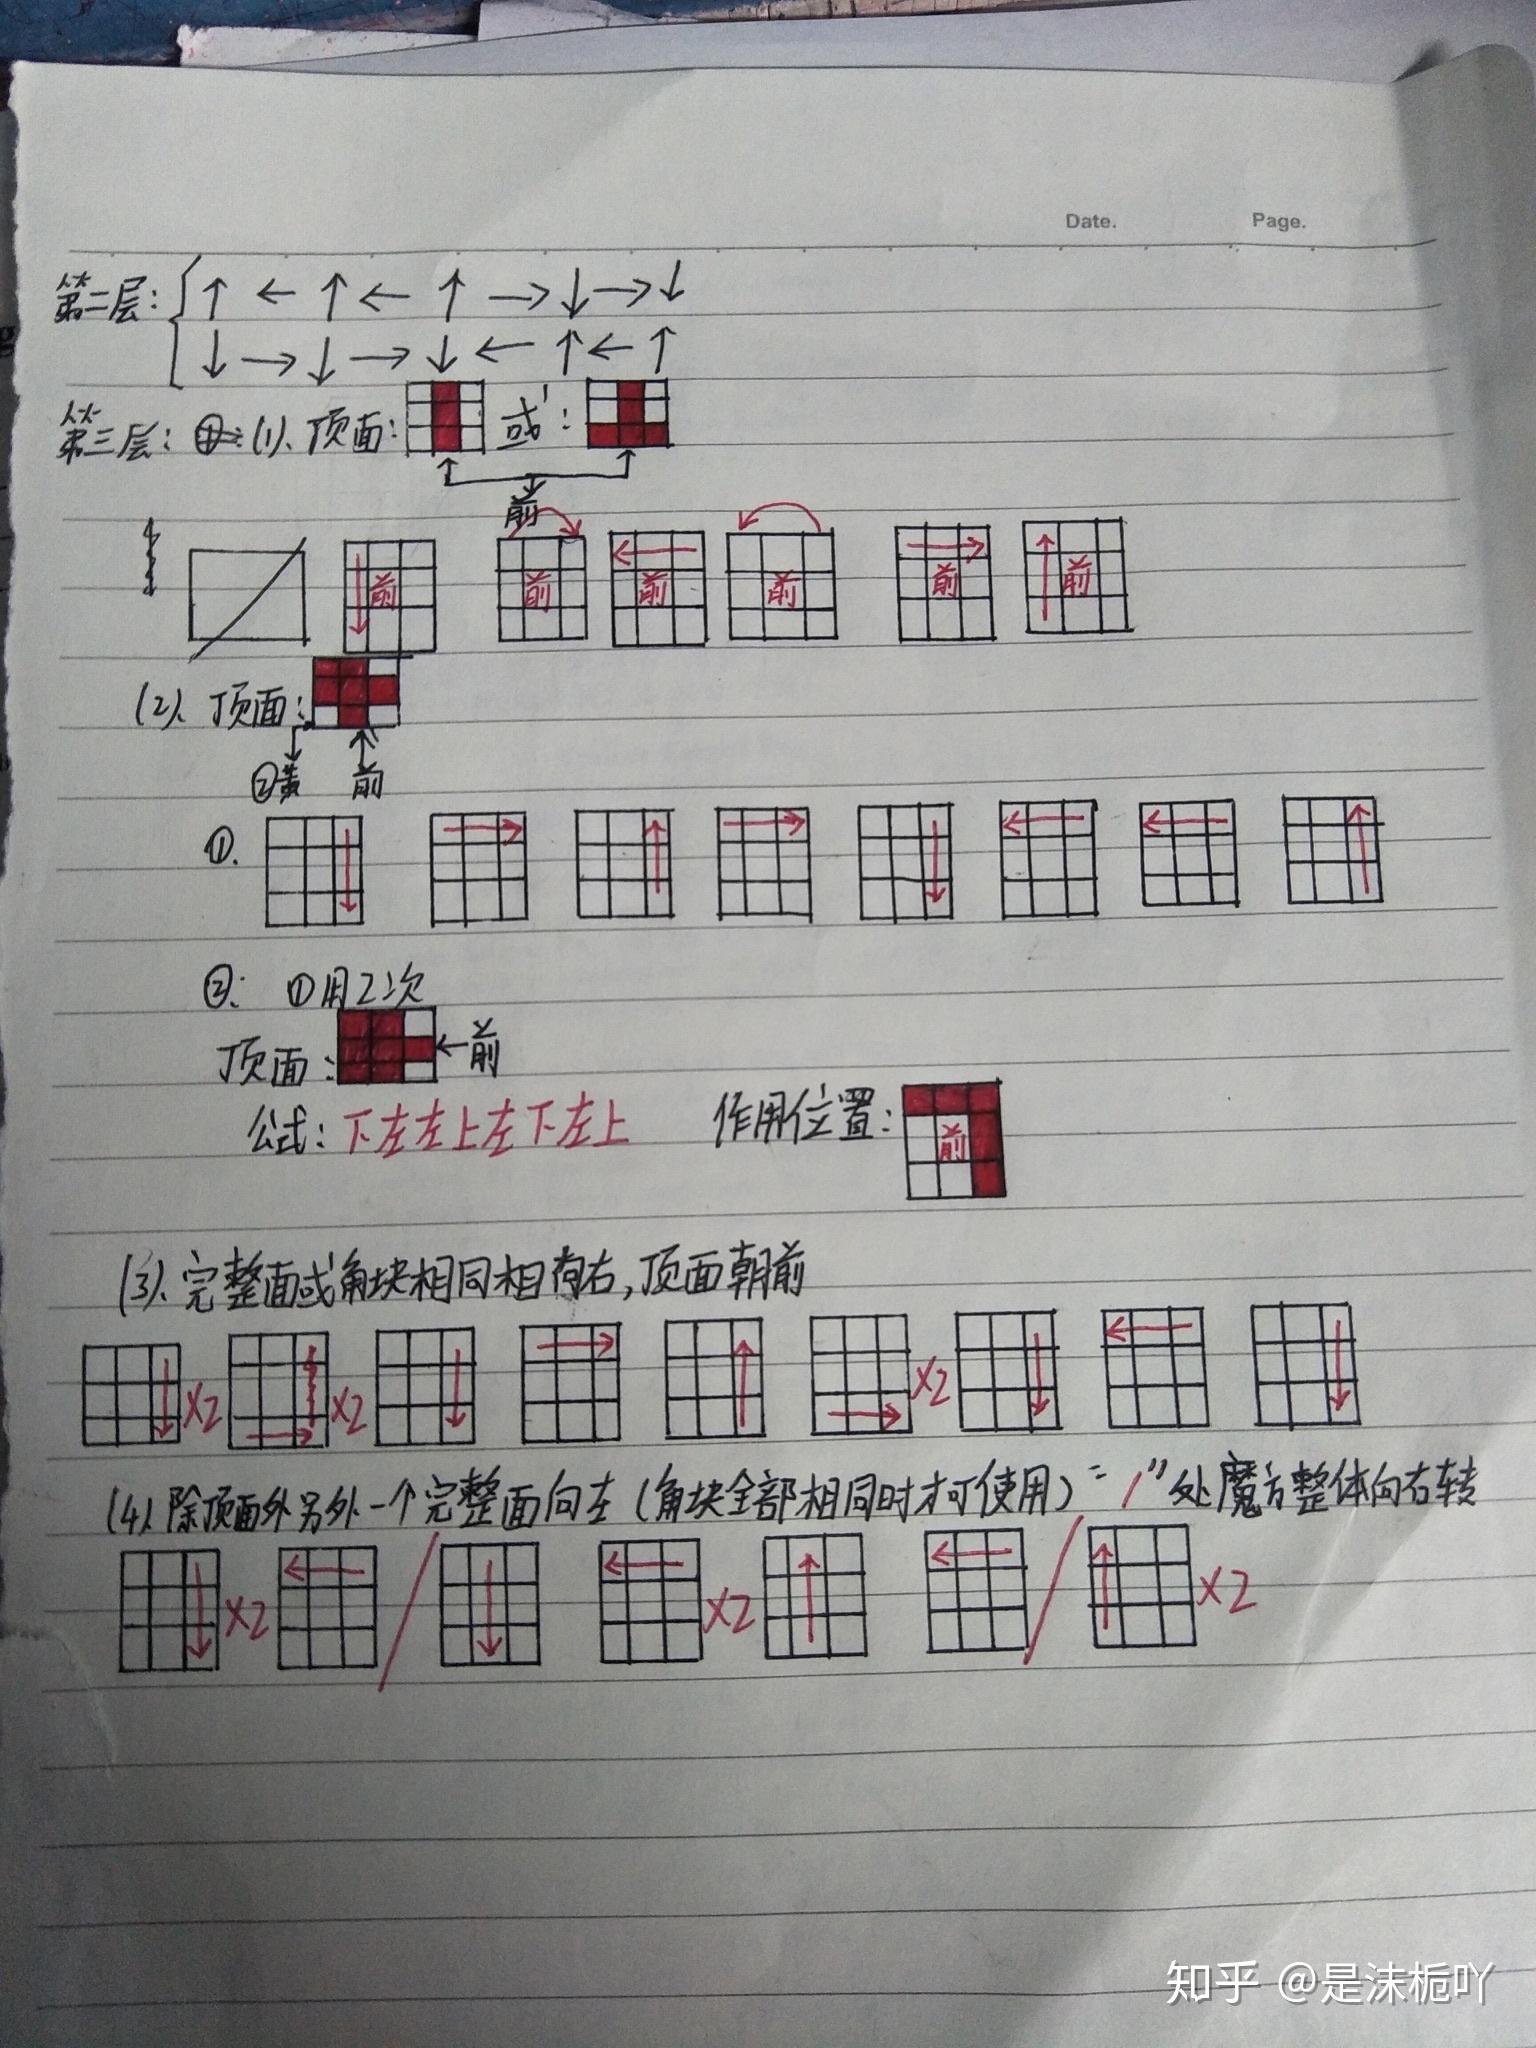 Date. Page.
第二层: ↑ ← ↑ ← ↑ → ↓ → ↓
↓ → ↓ → ↓ ← ↑ ← ↑
第三层: (1)、顶面: 或:
前
前 前 前 前 前 前
(2)、顶面:
②黄 前
①.
②: ①用2次
顶面: ←前
公式: 下左左上左下左上 作用位置: 前
(3)、完整面或角块相同相向右,顶面朝前
X2 X2 X2
(4)、除顶面外另外一个完整面向左(角块全部相同时才可使用) "/"处魔方整体向右转
X2 / X2 / X2
知乎 @是沫栀吖